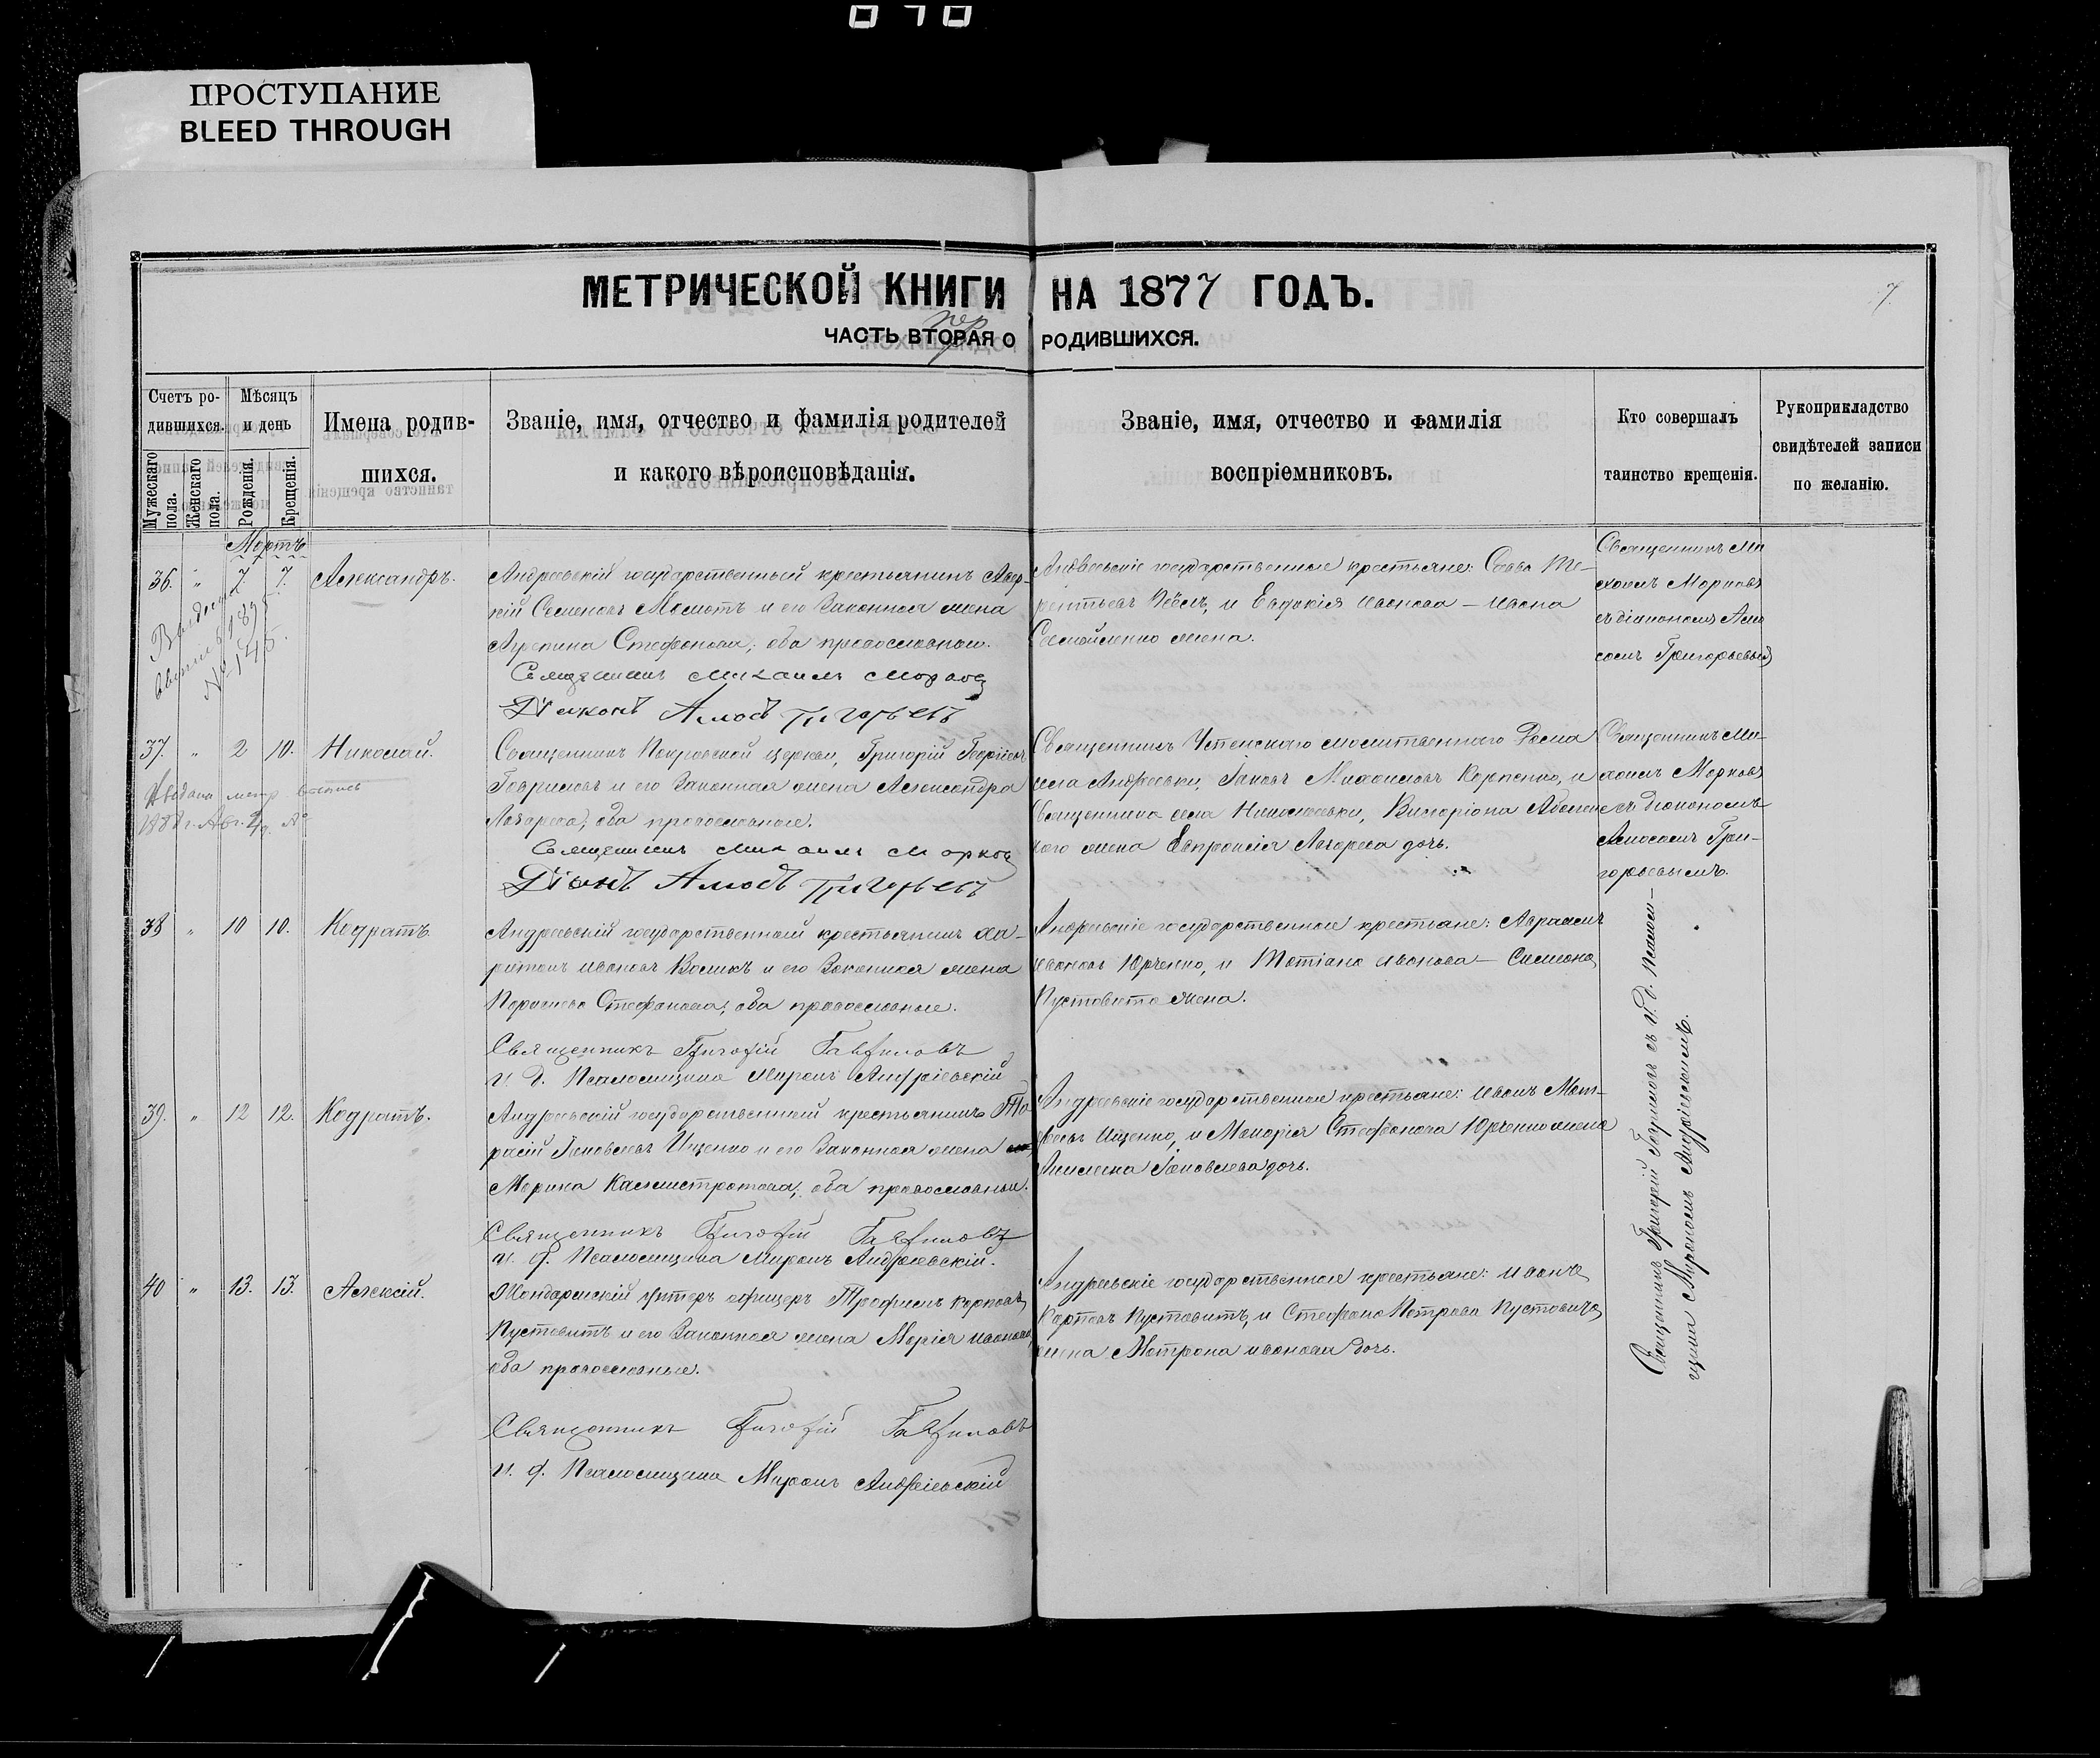 ПРОСТУПАНИЕ
BLEED THROUGH
МЕТРИЧЕСКОЙ КНИГИ НА 1877 ГОДЪ.
7.
ЧАСТЬ ВТОРАЯ О РОДИВШИХСЯ.
пер
Счетъ ро-
дившихся.
Мужескаго пола.
Женскаго пола.
Мѣсяцъ
и день
Рожденія.
Крещенія.
Имена родив-
шихся.
Званіе, имя, отчество и фамилія родителей
и какого вѣроисповѣданія.
Званіе, имя, отчество и фамилія
воспріемниковъ.
Кто совершалъ
таинство крещенія.
Рукоприкладство
свидѣтелей записи
по желанію.
Мартъ
36. " 7. 7. Александръ.
Андреевскій государственный крестьянинъ Авер-
кій Семеновъ и его законная жена
Агрепина Стефанова; оба православные.
Священникъ Михаилъ Марковъ
Діаконъ Амосъ Григорьевъ
Андреевскіе государственные крестьяне: Савва Те-
рентьевъ и Евдокія Иванова – Ивана
жена.
Священникъ Ми
хаилъ Марковъ
съ діакономъ Амо
сомъ Григорьевымъ
№ 145.
37. " 2 10. Николай.
Священникъ Покровской церкви, Григорій Георгіевъ
Гавриловъ и его законная жена Александра
Лазарева, оба православные.
Священникъ Михаилъ Марковъ
Діаконъ Амосъ Григорьевъ
Священникъ Успенскаго молитвеннаго Дома
села Андреевки, Іаковъ Михаиловъ Карпенко, и
священника села Николаевки,
жена Евпраксія Лазарева дочь.
Священникъ Ми-
хаилъ Марковъ
съ діакономъ
Амосомъ Гри-
горьевымъ.
38 " 10 10. Кодратъ.
Андреевскій государственный крестьянинъ Ха-
ритонъ Ивановъ Воликъ и его законная жена
Параскева Стефанова; оба православные.
Священникъ Григорій Гавриловъ
и. д. Псаломщика Миронъ Андріевскій
Андреевскіе государственные крестьяне: Авраамъ
Ивановъ Юрченко, и Татіана Иванова – Симеона
Пустовита жена.
39. " 12 12. Кодратъ.
Андреевскій государственный крестьянинъ Та-
расій Іаковлевъ Ищенко и его законная жена
Марина Каллистратова; оба православные.
Священникъ Григорій Гавриловъ
и. д. Псаломщика Миронъ Андріевскій.
Андреевскіе государственные крестьяне: Иванъ Мат-
ѳеевъ Ищенко, и Макарія Стефанова Юрченко жена
Іаковлева дочь.
40 " 13. 13. Алексій.
Жандармскій унтеръ офицеръ Трофимъ Карповъ
Пустовитъ и его законная жена Марія Иванова,
оба православные.
Священникъ Григорій Гавриловъ
и. д. Псаломщика Миронъ Андріевскій
Андреевскіе государственные крестьяне: Иванъ
Карповъ Пустовитъ, и Стефана Петрова Пустовита
жена Матрона Иванова дочь.
Священникъ Григорій Гавриловъ съ и. д. Псалом-
щика Мирономъ Андріевскимъ.